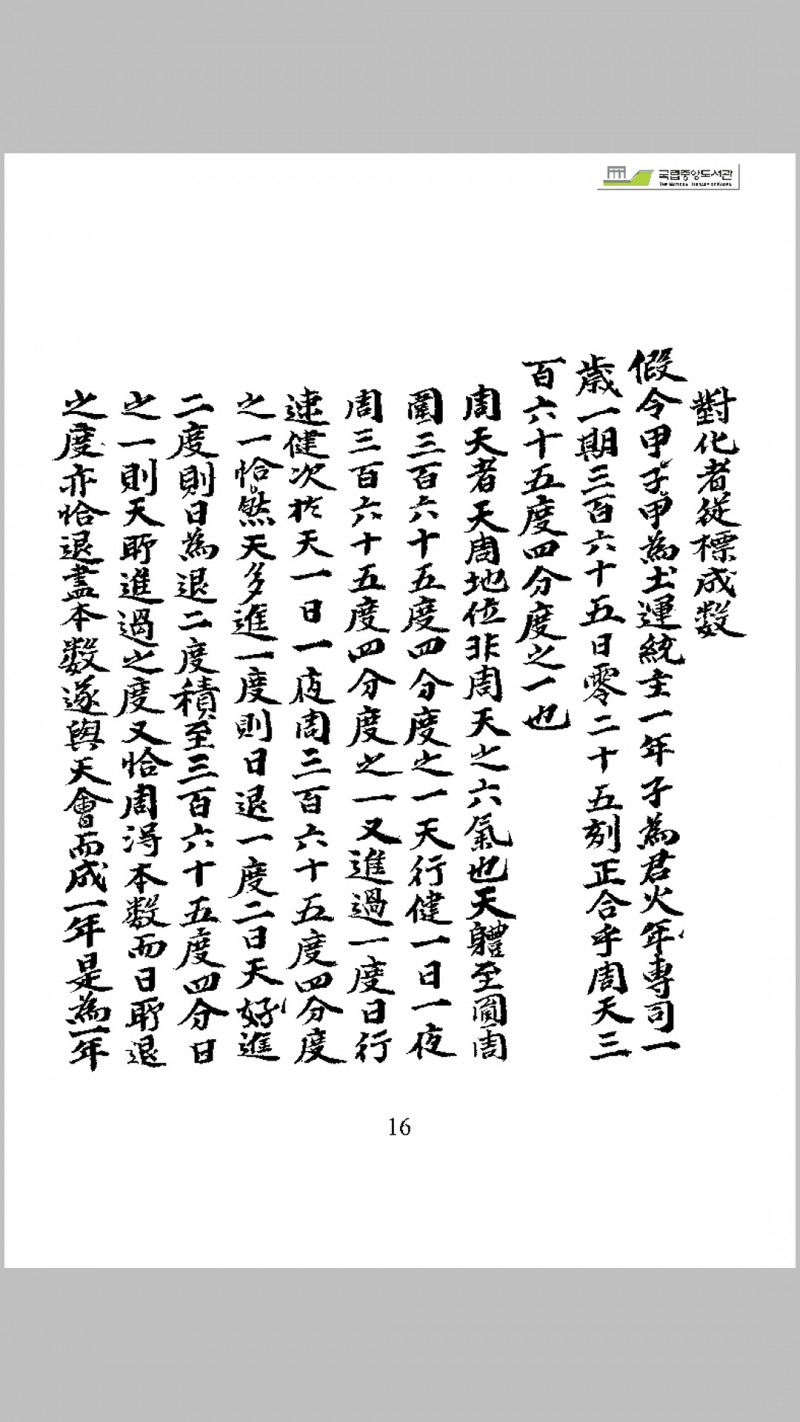 국립중앙도서관
THE NATIONAL LIBRARY OF KOREA
對化者從標成数
假令甲子甲為土運統主一年子為君火年專司一
歲一期三百六十五日零二十五刻正合乎周天三
百六十五度四分度之一也
周天者天周地位非周天之六氣也天體至圓周
圍三百六十五度四分度之一天行健一日一夜
周三百六十五度四分度之一又進過一度日行
速健次於天一日一夜周三百六十五度四分度
之一恰然天多進一度則日退一度二日天好進
二度則日為退二度積至三百六十五度四分日
之一則天所進過之度又恰周淂本数而日所退
之度亦恰退盡本数遂與天會而成一年是為一年
16